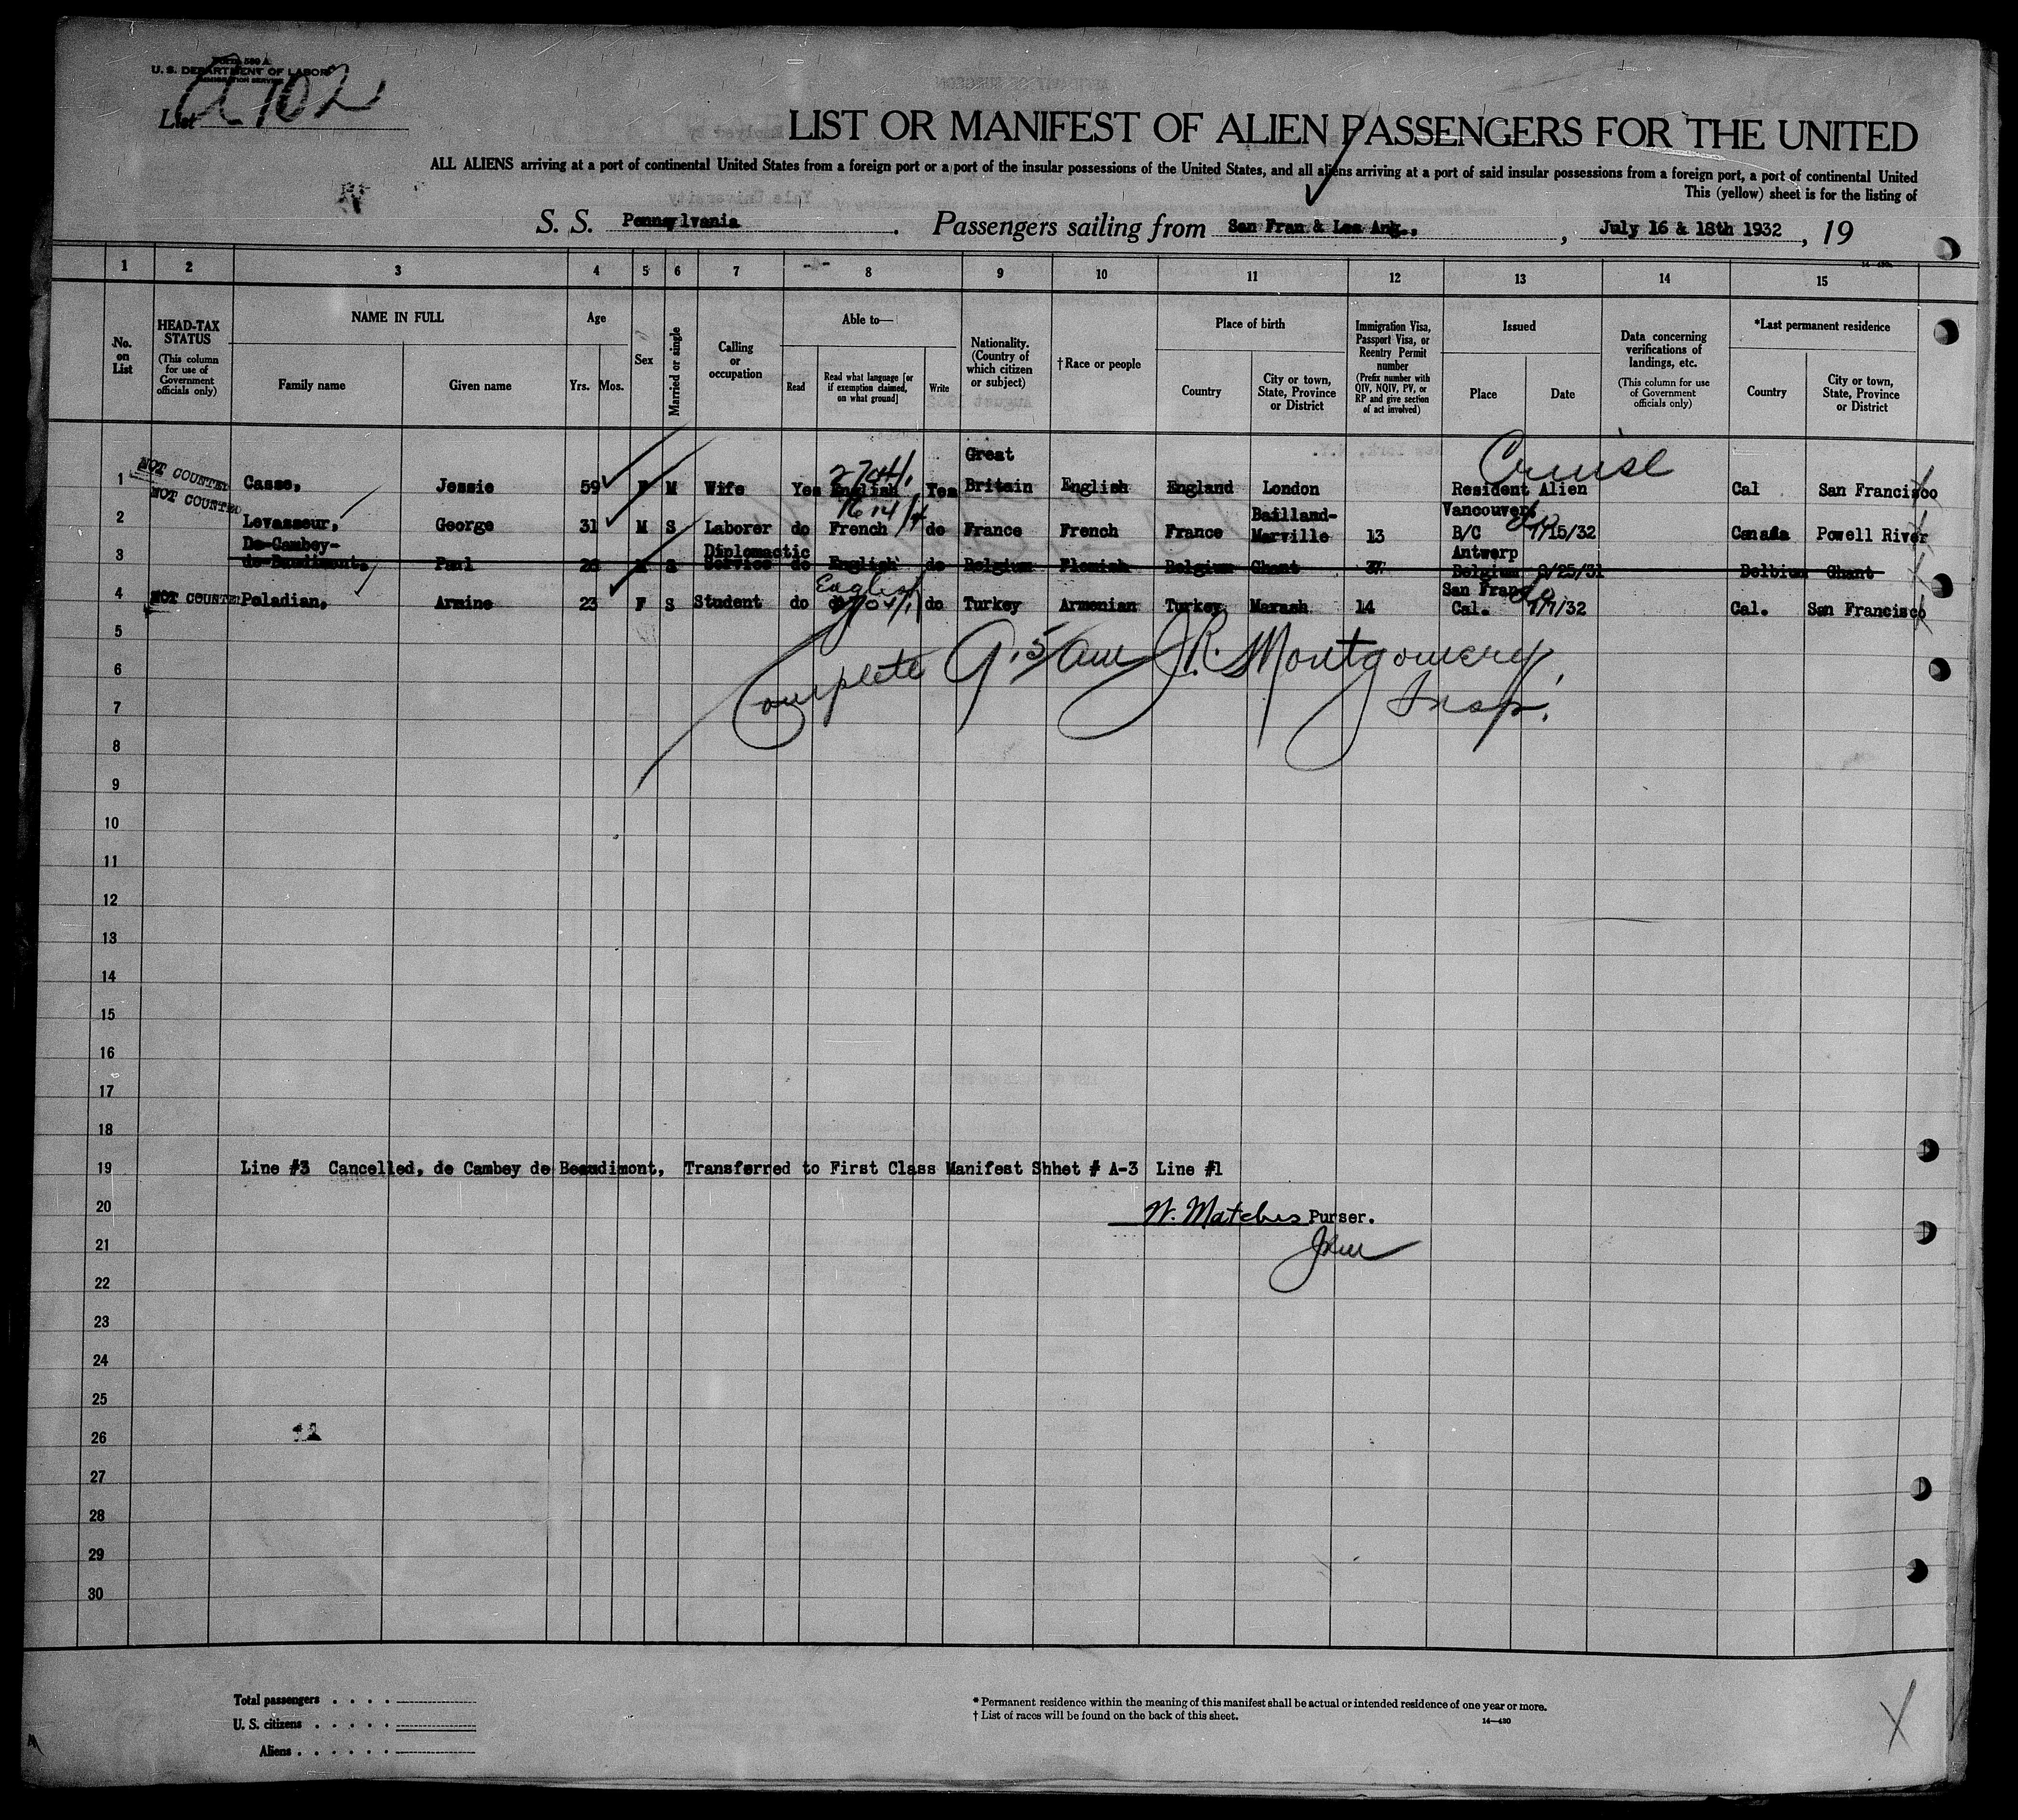 Form 500 A
U. S. DEPARTMENT OF LABOR
IMMIGRATION SERVICE
List A 702
LIST OR MANIFEST OF ALIEN PASSENGERS FOR THE UNITED
ALL ALIENS arriving at a port of continental United States from a foreign port or a port of the insular possessions of the United States, and all aliens arriving at a port of said insular possessions from a foreign port, a port of continental United
This (yellow) sheet is for the listing of
S. S. Pennsylvania. Passengers sailing from San Fran & Los Ang., , July 16 & 18th 1932, 19
1 2 3 4 5 6 7 8 9 10 11 12 13 14 15
No. on List
HEAD-TAX STATUS
(This column for use of Government officials only)
NAME IN FULL
Family name
Given name
Age
Yrs. Mos.
Sex
Married or single
Calling or occupation
Able to—
Read
Read what language [or if exemption claimed, on what ground]
Write
Nationality. (Country of which citizen or subject)
† Race or people
Place of birth
Country
City or town, State, Province or District
Immigration Visa, Passport Visa, or Reentry Permit number
(Prefix number with QIV, NQIV, PV, or RP and give section of act involved)
Issued
Place
Date
Data concerning verifications of landings, etc.
(This column for use of Government officials only)
*Last permanent residence
Country
City or town, State, Province or District
Great
Cruise
1 NOT COUNTED Casse, Jessie 59 F M Wife Yes English Yes Britain English England London Resident Alien Cal San Francisco
NOT COUNTED
Bailland- Vancouver
2 Levasseur, George 31 M S Laborer do French do France French France Marville 13 B/C 7/15/32 Canada Powell River
De Cambey- Diplomactic Antwerp
3 de Baudimont, Paul 26 M S Service do English do Belgium Flemish Belgium Ghant 37 Belgium 8/25/31 Belbium Ghant
English San Fran
4 NOT COUNTED Peladian, Armine 23 F S Student do do Turkey Armenian Turkey Marash 14 Cal. 7/7/32 Cal. San Francisco
5
Complete 9.15 am J.R. Montgomery,
6
Insp.
7
8
9
10
11
12
13
14
15
16
17
18
19 Line #3 Cancelled, de Cambey de Beaudimont, Transferred to First Class Manifest Shhet # A-3 Line #1
20 Purser.
21 JRM
22
23
24
25
26
27
28
29
30
Total passengers . . . .
U. S. citizens . . . . .
Aliens . . . . . .
* Permanent residence within the meaning of this manifest shall be actual or intended residence of one year or more.
† List of races will be found on the back of this sheet.
14—430
X